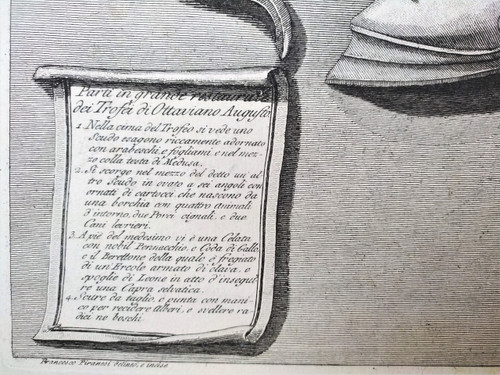 Parti in grande restaurate
dei Trofei di Ottaviano Augusto
1. Nella cima del Trofeo si vede uno
Scudo esagono riccamente adornato
con arabeschi, e fogliami, e nel mez-
zo colla testa di Medusa.
2. Si scorge nel mezzo del detto un al-
tro Scudo in ovato a sei angoli con
ornati di cartocci, che nascono da
una borchia con quattro animali
d'intorno, due Porci cignali, e due
Cani levrieri.
3. A piè del medesimo vi è una Celata
con nobil Pennacchio, e Coda di Gallo,
e il Berettone della quale è fregiato
di un Ercole armato di clava, e
spoglie di Leone in atto d'insegui-
re una Capra selvatica.
4. Scure da taglio, e punta con mani-
co per recidere Alberi, e svellere ra-
dici ne boschi.
Francesco Piranesi delineò, e incise